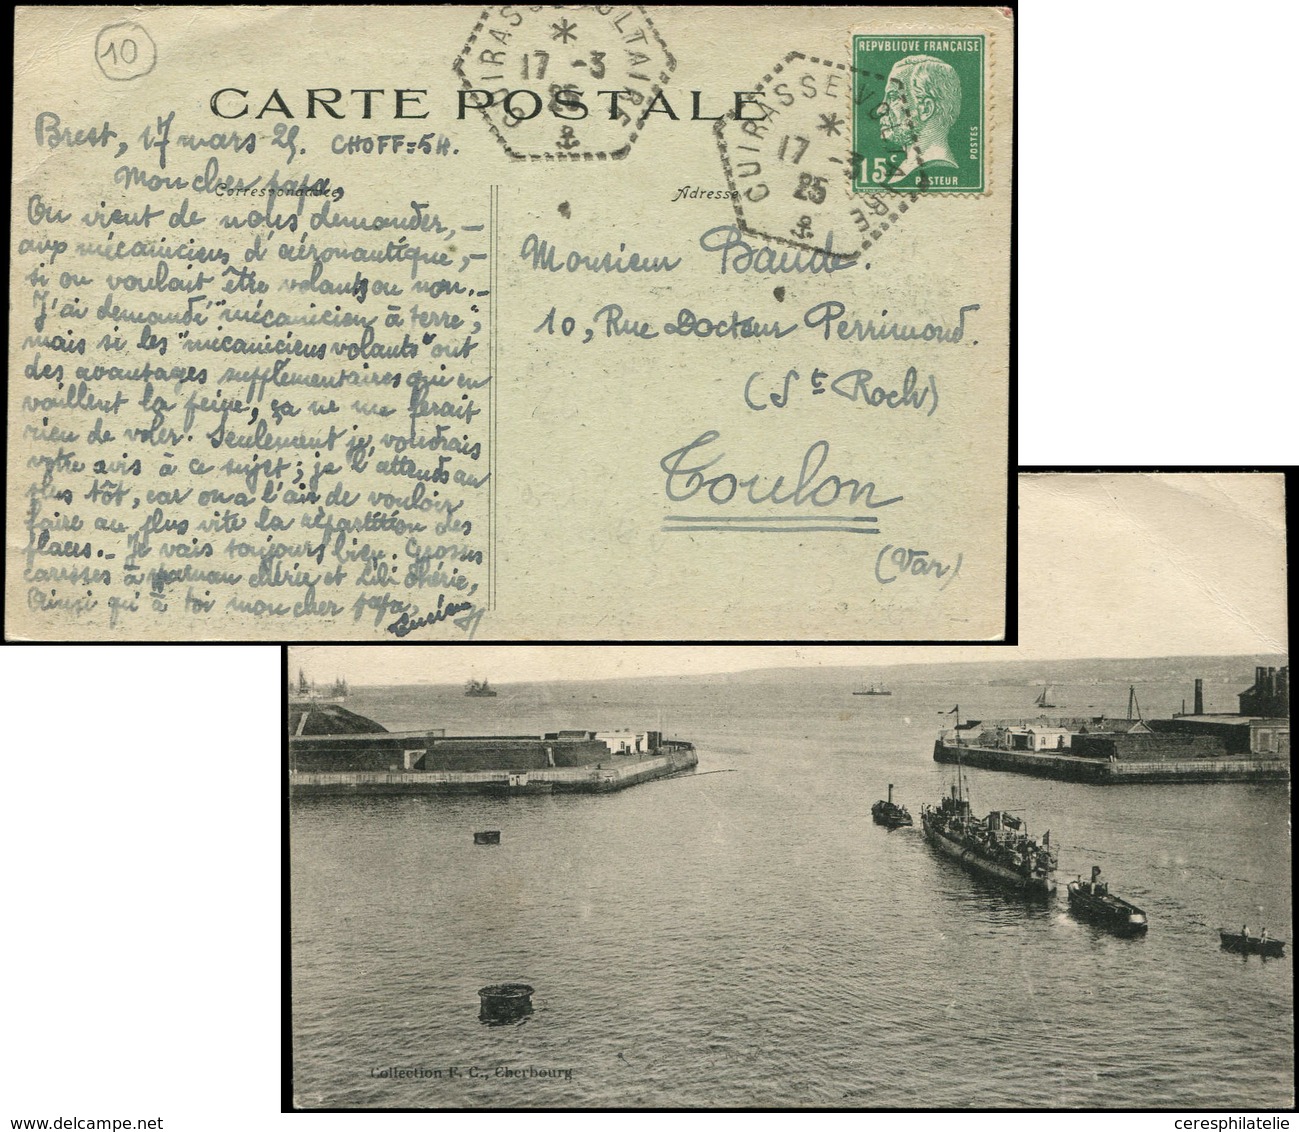 10
CUIRASSE VOLTAIRE
17 -3
25
CARTE POSTALE
REPVBLIQUE FRANÇAISE
15c
POSTES
PASTEUR
CUIRASSE VOLTAIRE
17 -3
25
Brest, 17 mars 25. CHOFF=5H.
Mon cher papa,
Correspondance
Adresse
On vient de nous demander, —
aux mécaniciens d'aéronautique, —
si on voulait être volants ou non. —
J'ai demandé "mécanicien à terre",
mais si les "mécaniciens volants" ont
des avantages supplémentaires qui en
vaillent la peine, ça ne me ferait
rien de voler. Seulement je voudrais
votre avis à ce sujet; je l'attends au
plus tôt, car on a l'air de vouloir
faire au plus vite la répartition des
places. — Je vais toujours bien. Grosses
caresses à maman chérie et Lili chérie,
Ainsi qu'à toi mon cher papa,
Lucien
Monsieur Baude.
10, Rue Docteur Perrimond.
(St Roch)
Toulon
(Var)
Collection F. C., Cherbourg
ceresphilatelie